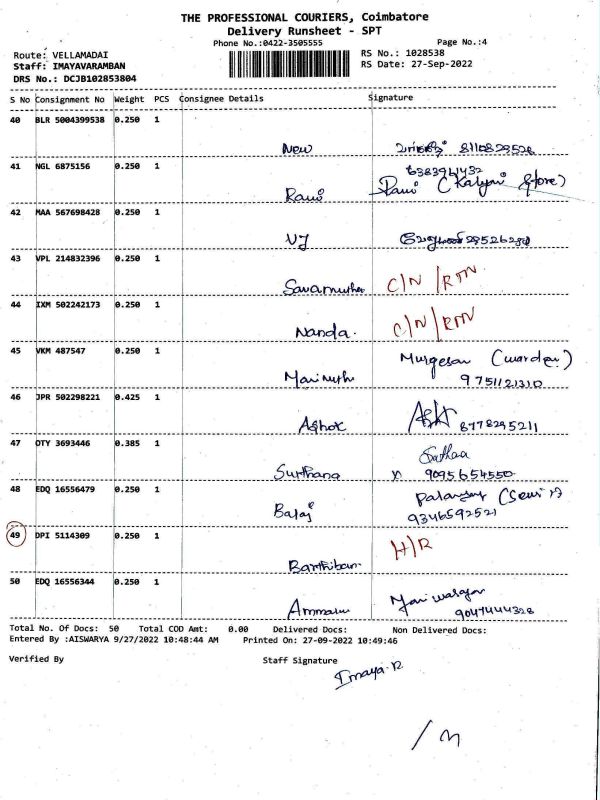 THE PROFESSIONAL COURIERS, Coimbatore
Delivery Runsheet - SPT
Phone No.:0422-3505555 Page No.:4
Route: VELLAMADAI RS No.: 1028538
Staff: IMAYAVARAMBAN RS Date: 27-Sep-2022
DRS No.: DCJB102853804
S No Consignment No Weight PCS Consignee Details Signature
40 BLR 5004399538 0.250 1
New 8110829528
41 NGL 6875156 0.250 1 6383961432
Rani Rani (Kalyani Store)
42 MAA 567698428 0.250 1
VJ
43 VPL 214832396 0.250 1
C/N/RTN
44 IXM 502242173 0.250 1
Nanda. C/N/RTN
45 VKM 487547 0.250 1
Murgesan (warden)
Marimuthu 9751121310
46 JPR 502298221 0.425 1
Ashok 8778295211
47 OTY 3693446 0.385 1
Surthana 9095654550
48 EDQ 16556479 0.250 1
Balaji 9346592521
49 DPI 5114309 0.250 1
H/R
Barthiban
50 EDQ 16556344 0.250 1
Ammalu 9047444328
Total No. Of Docs: 50 Total COD Amt: 0.00 Delivered Docs: Non Delivered Docs:
Entered By :AISWARYA 9/27/2022 10:48:44 AM Printed On: 27-09-2022 10:49:46
Verified By Staff Signature
Imaya.R